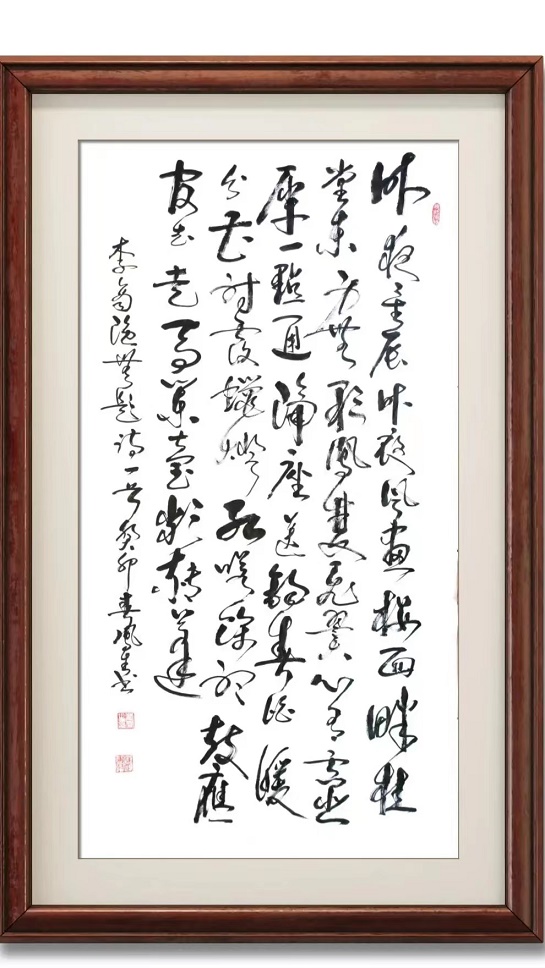 昨夜星辰昨夜風畫樓西畔桂
堂東身無彩鳳雙飛翼心有靈
犀一點通隔座送鉤春酒暖
分曹射覆蠟燈紅嗟餘聽鼓應
官去走馬蘭臺類轉蓬
李商隐無題詩一首癸卯春鳳書